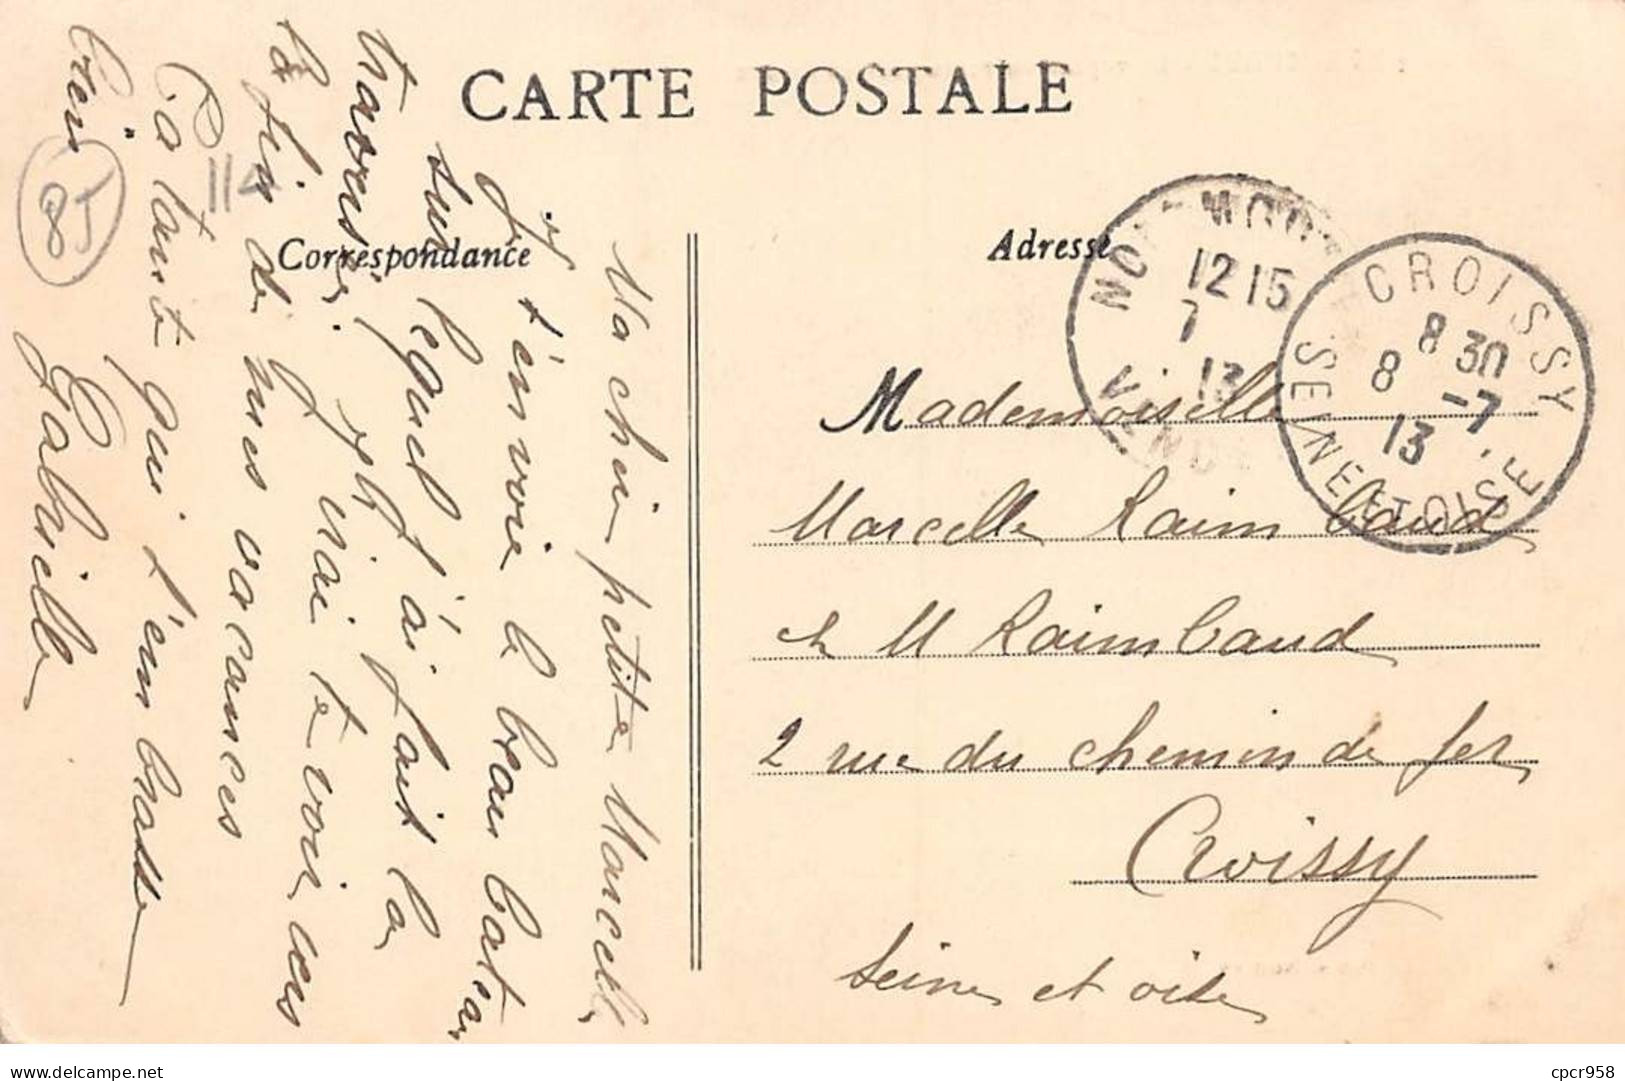 CARTE POSTALE
Correspondance
Adresse
Ma chère petite Marcelle
Je t'envoie le beau bateau
sur lequel j'ai fait la
traversée. J'irai te voir vers
la fin de mes vacances
Ta tante qui t'embrasse
bien
Gabrielle
85
114
NOIRMOUTIER
12 15
7
13
VENDÉE
CROISSY
8 30
8 -7
13
SEINE ET OISE
Mademoiselle
Marcelle Raimbaud
ch M Raimbaud
2 rue du chemin de fer
Croissy
Seine et oise
cpcr958